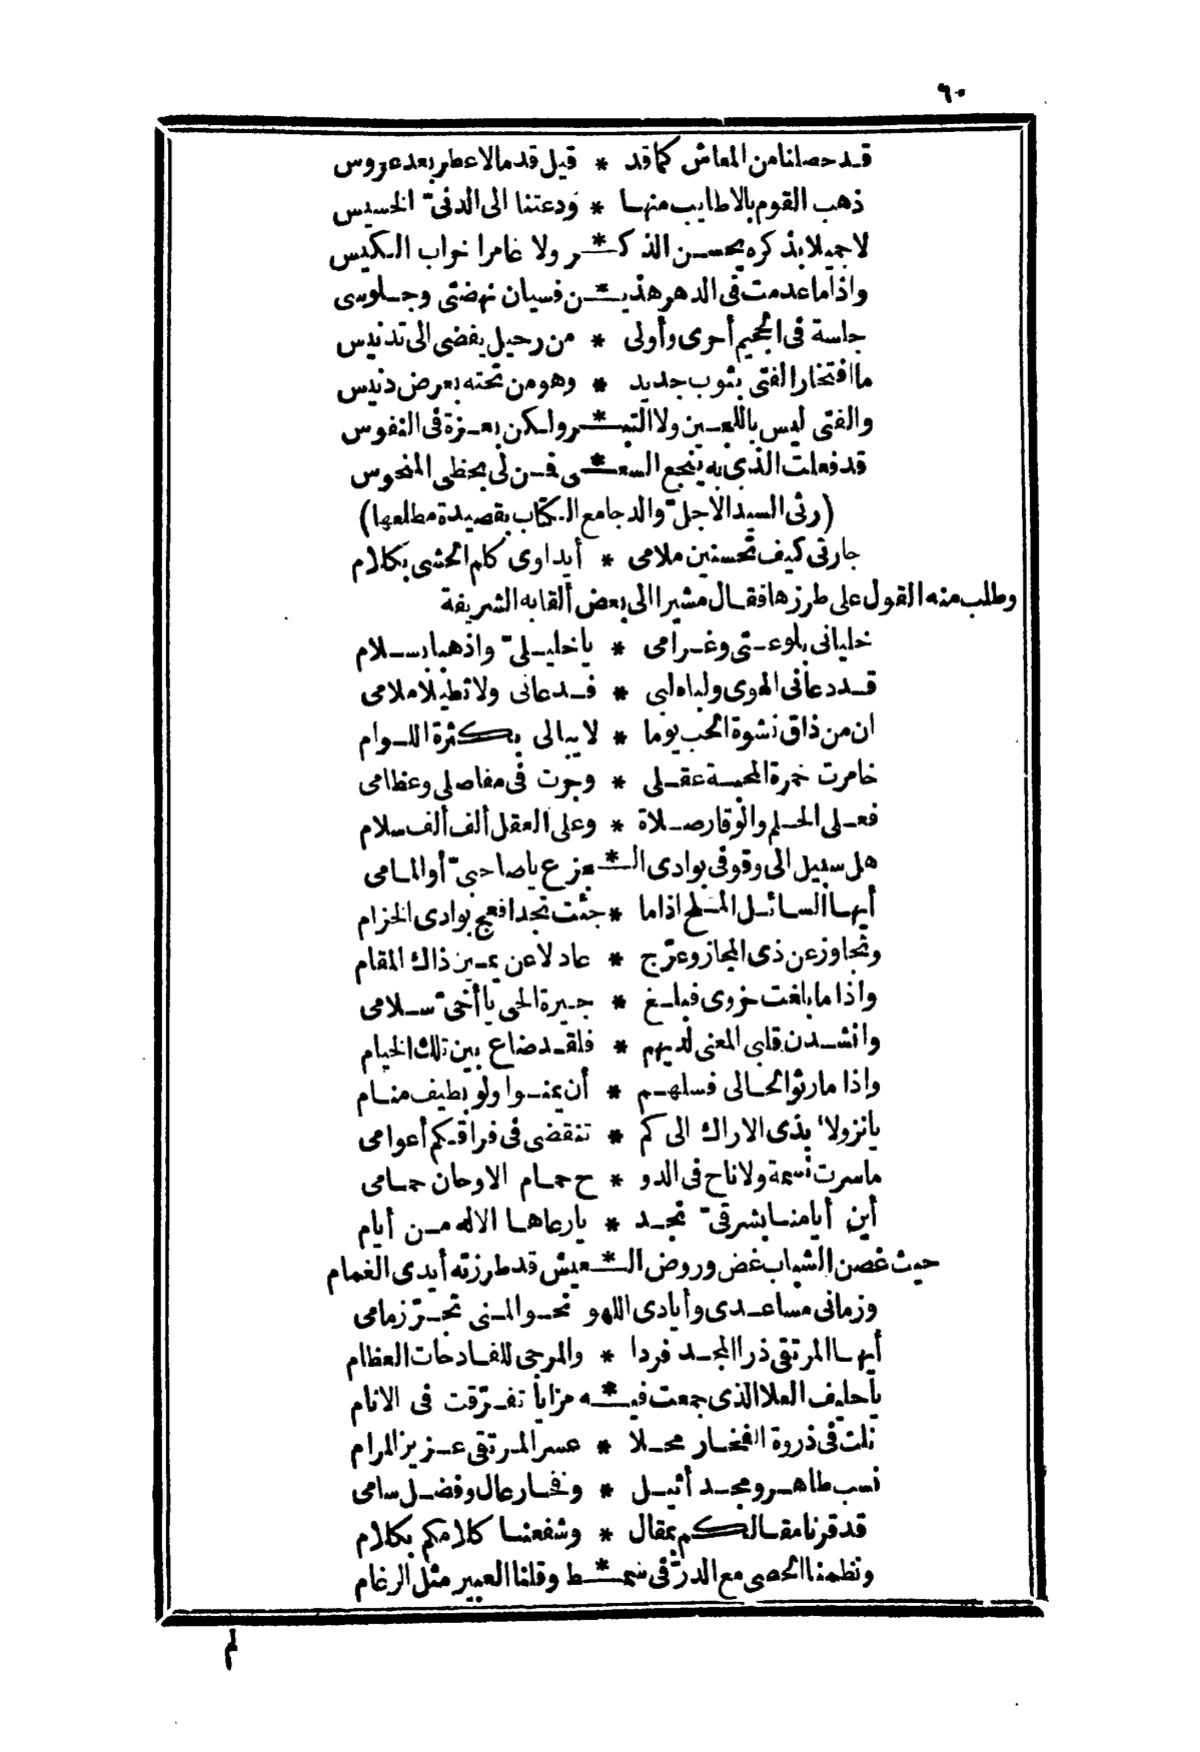 ٦٠
قد حصلنا من المعاش كما قد * قيل قدما لا عطر بعد عروس
ذهب القوم بالاطايب منها * ودعتنا الى الدنىّ الخسيس
لا جميلا بذكره يحسن الذكـ * ـر ولا غامرا خراب الكيس
واذا ما عدمت فى الدهر هذيـ * ـن فسيان نهضتى وجلوسى
جلسة فى الجحيم أحرى وأولى * من رحيل يفضى الى تدنيس
ما افتخار الفتى بثوب جديد * وهو من تحته بعرض دنيس
والفتى ليس باللجين ولا التبـ * ـر ولكن بعزة فى النفوس
قد فعلت الذى به ينجح السعـ * ـى فمن لى بحظى المنحوس
(رثى السيد الاجل والد جامع الكتاب بقصيدة مطلعها)
جارتى كيف تحسنين ملامى * أيداوى كلم الحشى بكلام
وطلب منه القول على طرزها فقال مشيرا الى بعض ألقابه الشريفة
خليانى بلوعتى وغرامى * يا خليلىّ واذهبا بسلام
قد دعانى الهوى ولباه لبى * فدعانى ولا تطيلا ملامى
ان من ذاق نشوة الحب يوما * لا يبالى بكثرة اللوام
خامرت خمرة المحبة عقلى * وجرت فى مفاصلى وعظامى
فعلى الحلم والوقار صلاة * وعلى العقل ألف ألف سلام
هل سبيل الى وقوفى بوادى الـ * ـجزع يا صاحبىّ أو المامى
أيها السائل الملح اذا ما * جئت نجدا فعج بوادى الخزام
وتجاوز عن ذى المجاز وعرّج * عادلا عن يمين ذاك المقام
واذا ما بلغت حزوى فبلغ * جيرة الحى يا أخىّ سلامى
وانشدن قلبى المعنى لديهم * فلقد ضاع بين تلك الخيام
واذا ما رثوا لحالى فسلهم * أن يمنوا ولو بطيف منام
يا نزولا بذى الاراك الى كم * تنقضى فى فراقكم أعوامى
ما سرت نسمة ولا ناح فى الدو * ح حمام الا وحان حمامى
أين أيامنا بشرقىّ نجد * يا رعاها الاله من أيام
حيث غصن الشباب غض وروض الـ * ـعيش قد طرزته أيدى الغمام
وزمانى مساعدى وأيادى اللهو نحو المنى تجرّ زمامى
أيها المرتقى ذرا المجد فردا * والمرجى للفادحات العظام
يا حليف العلا الذى جمعت فيـ * ـه مزايا تفرّقت فى الانام
نلت فى ذروة الفخار محلا * عسر المرتقى عزيز المرام
نسب طاهر ومجد أثيل * وفخار عال وفضل سامى
قد قرنا مقالكم بمقال * وشفعنا كلامكم بكلام
ونظمنا الحصى مع الدرّ فى سمـ * ـط وقلنا العبير مثل الرغام
لم